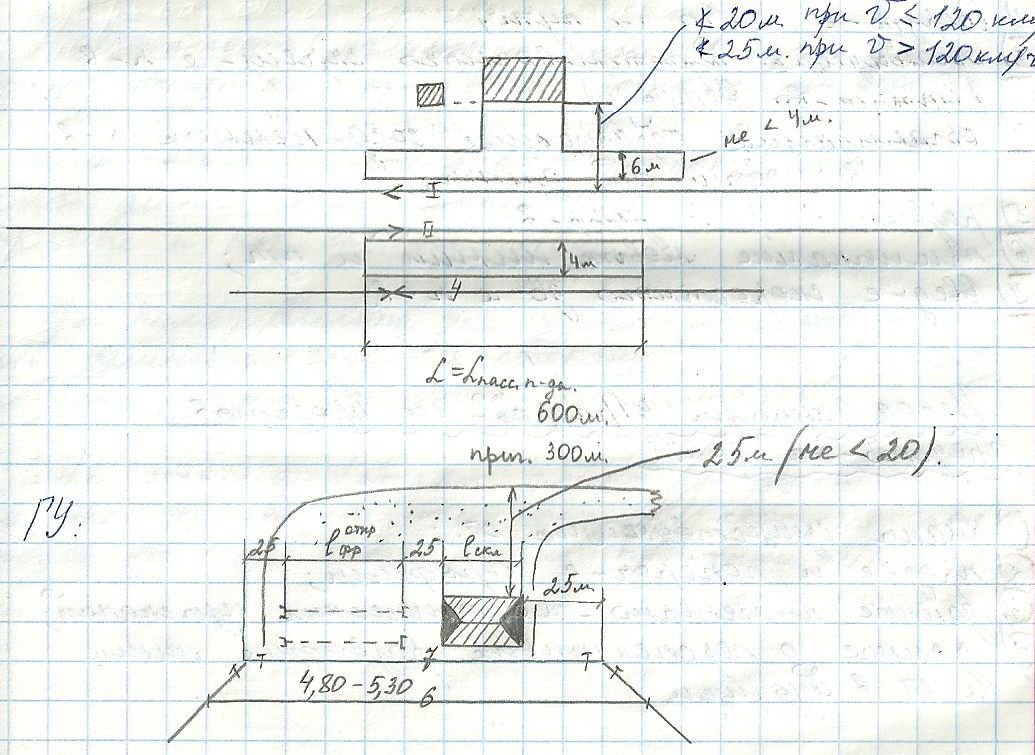 ≮ 20м при v ≤ 120 км/
≮ 25м. при v > 120км/ч
не < 4м.
6м
I
II
4м
4
L = Lпасс. п-да.
600м.
приг. 300м.
25м (не < 20).
ГУ:
25 lфр откр 25 lскл
25м
7
Т Т
4,80 – 5,30
6